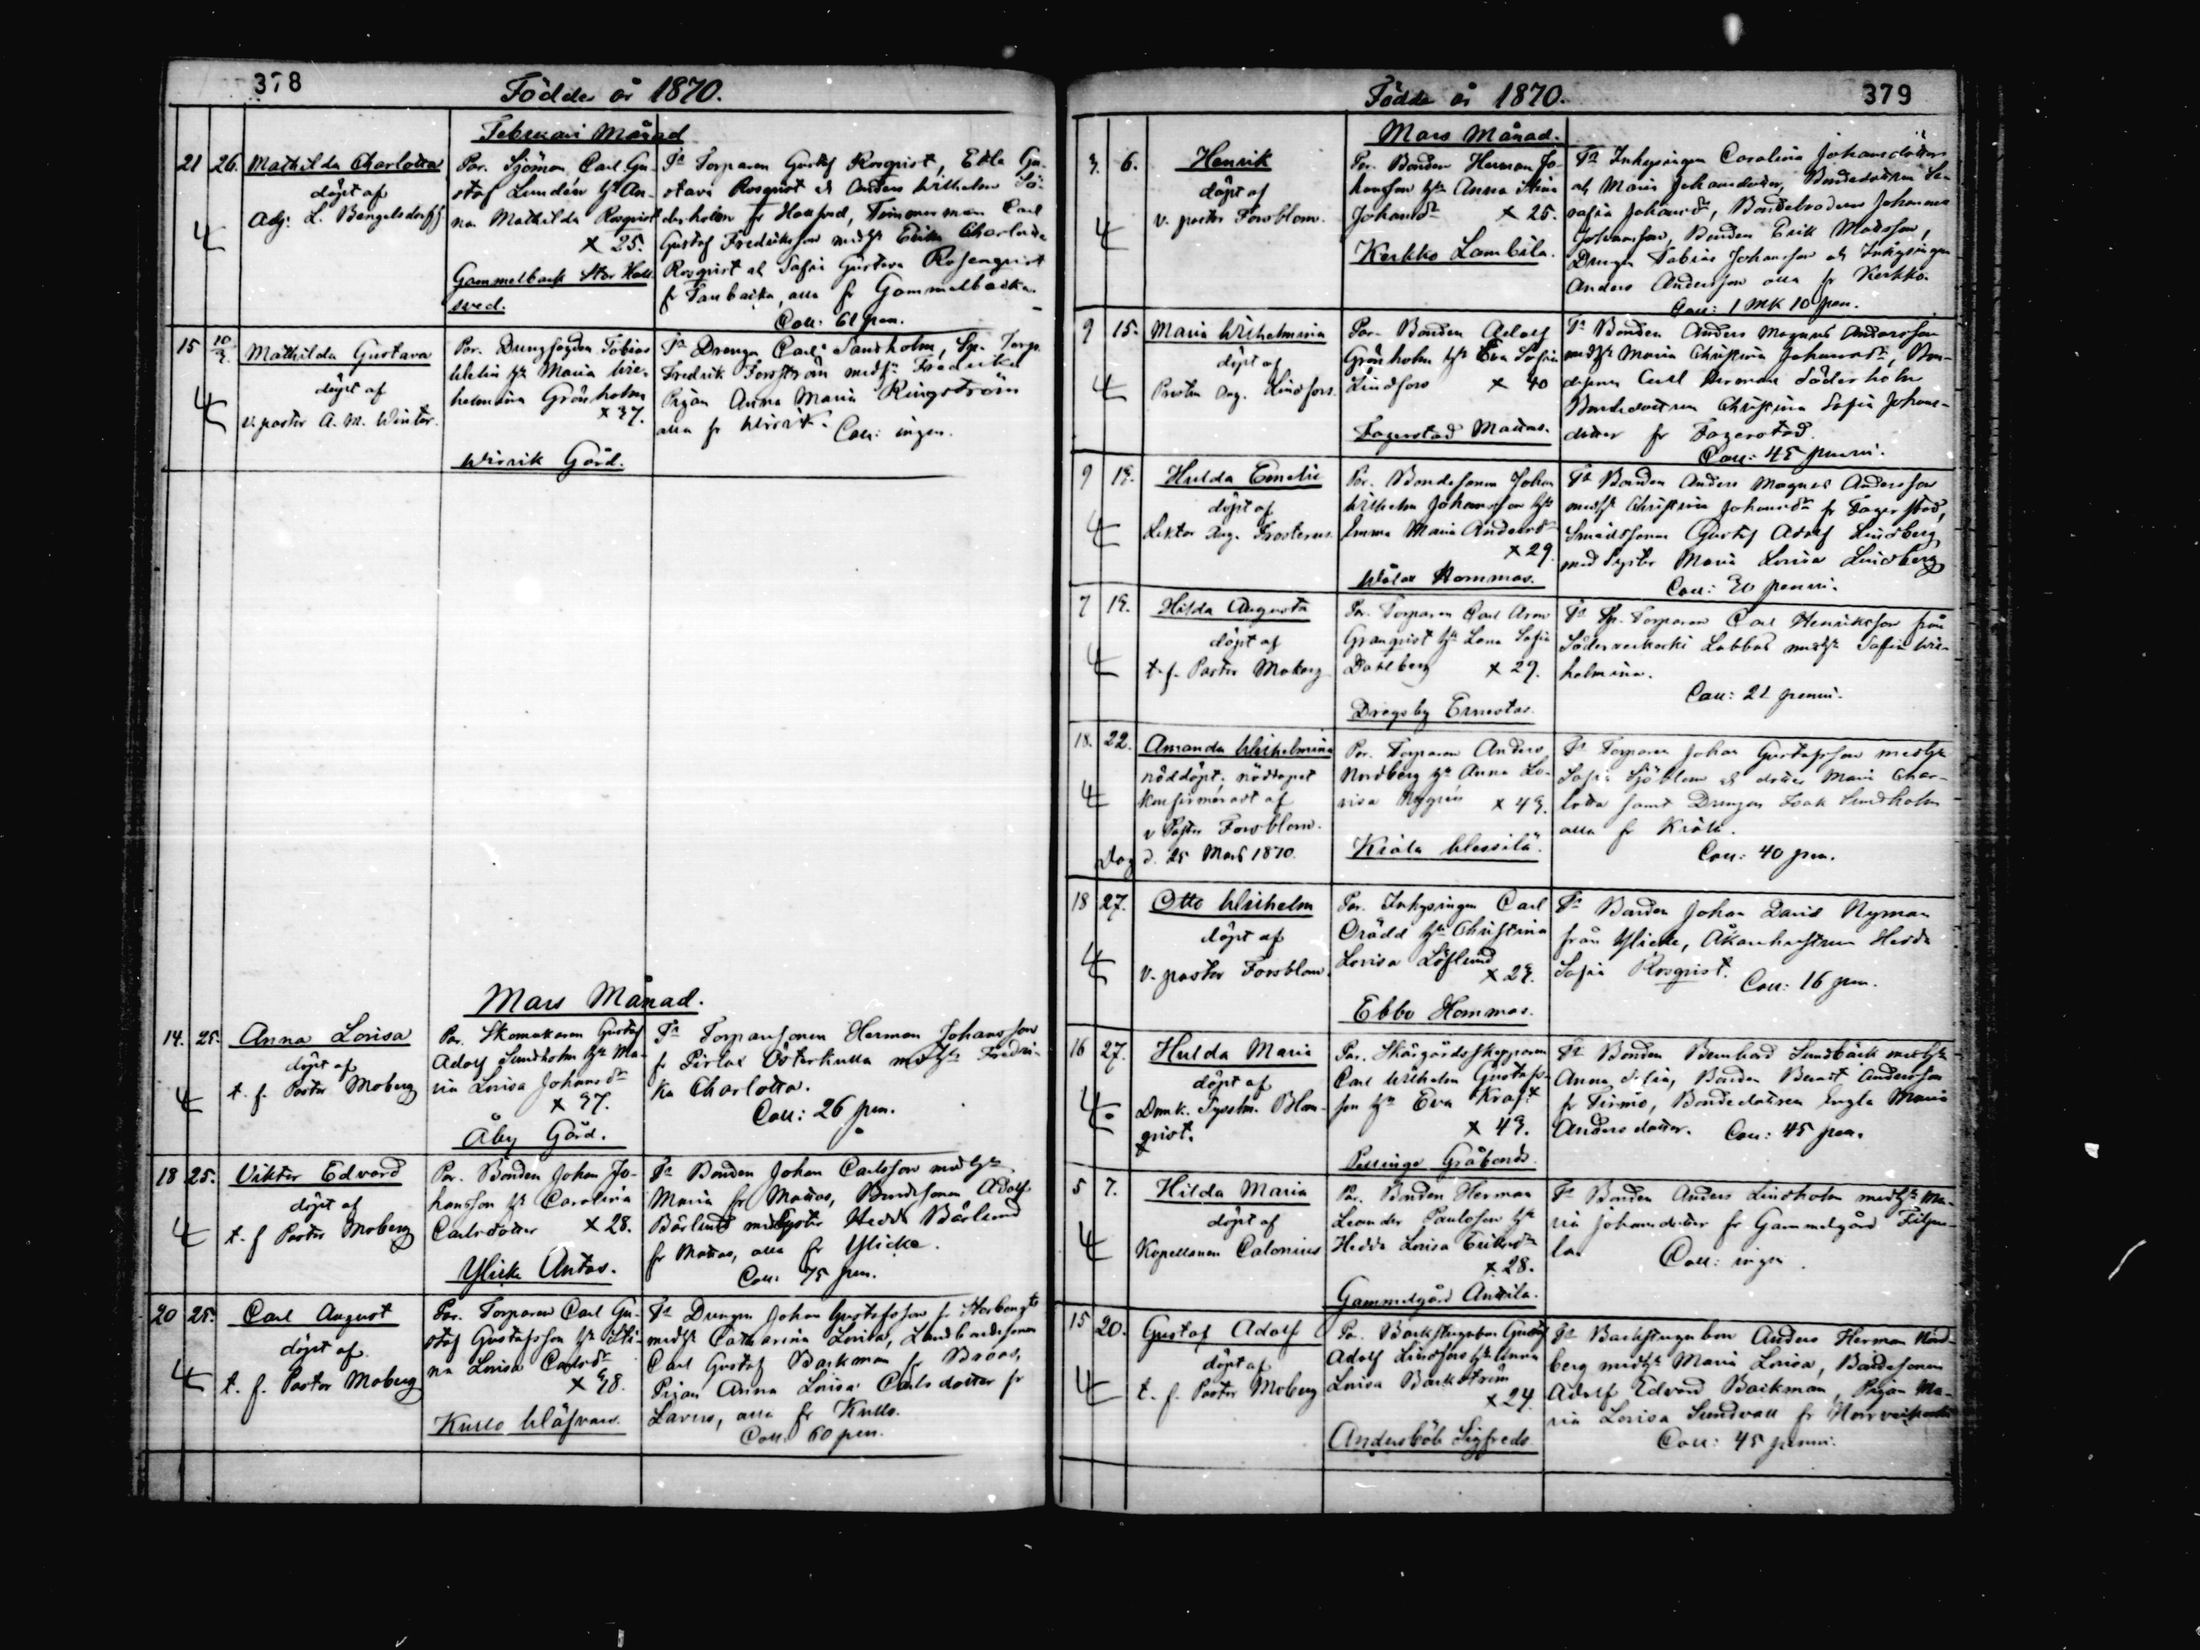 378
Födde år 1870.
Februari Månad
21 26. Mathilda Charlotta
döpt af
Adj: L. Bengelsdorff
Par. Sjöman Carl Gu-
staf Lundén h. An-
na Mathilda Rosqvist
x 25.
Gammelback Stor Hatt-
sved.
Torparen Gustaf Rosqvist, Edla Gu-
stava Rosqvist & Anders Wilhelm Sö-
derholm fr Timmerman Carl
Gustaf Fredriksson Erika Charlotta
Rosqvist & Sofia Gustava Rosenqvist
fr alla fr Gammelbacka.
Coll: 61 pen.
15 10/3. Mathilda Gustava
döpt af
v. pastor A. M. Winter.
Par. Tobias
h. Maria Wil-
helmina Grönholm
x 37.
Wirvik Gård.
Drengen Carl Sandholm, Sp. Torp.
Fredrik Forsström Fredrika
Pigan Anna Maria Ringström
alla fr Wirvik. Coll: ingen.
Mars Månad.
14. 25. Anna Lovisa
döpt af
t. f. Pastor Moberg
Par. Skomakaren Gustaf
Adolf Sundholm h. Ma-
ria Lovisa Johansdr
x 37.
Åby Gård.
Torparesonen Herman Johansson
fr Pirlax Österkulla Fredri-
ka Charlotta.
Coll: 26 pen.
18 25. Viktor Edvard
döpt af
t. f Pastor Moberg
Par. Bonden Johan Jo-
hansson h. Carolina
Carlsdotter x 28.
Ylicke Antas.
Bonden Johan Carlsson
Maria fr Mattas, Bondesonen Adolf
Bärlund med Syster Hedda Bärlund
fr Mattas, alla fr Ylicke.
Coll: 75 pen.
20 25. Carl August
döpt af
t. f. Pastor Moberg
Par. Torparen Carl Gu-
staf Gustafsson h. Sti-
na Lovisa Carlsdr
x 38.
Kullo
Drengen Johan Gustafsson fr
Catharina Lovisa, Landbondesonen
Carl Gustaf Backman fr
Pigan Anna Lovisa Carlsdotter fr
alla fr Kullo.
Coll: 60 pen.
Födde år 1870.
379
Mars Månad.
3. 6. Henrik
döpt af
v. pastor Forsblom.
Par. Bonden Herman Jo-
hansson h. Anna Stina
Johansdr x 25.
Kerkko Lambila.
Inhysingen Carolina Johansdotter
& Maria Johansdotter, Bondedottren Se-
rafia Johansdr, Bondebrodren Johannes
Johansson, Bonden Erik Matsson,
Drengen Tobias Johansson & Inhysingen
Anders Andersson alla fr Kerkko.
Coll: 1 mk 10 pen.
9 15. Maria Wilhelmina
döpt af
Prosten Aug. Lindfors.
Par. Bonden Adolf
Grönholm h. Eva Sofia
Lindfors x 40
Fagerstad Mattas.
Bonden Anders Magnus Andersson
Maria Christina Johansdr, Bon-
Carl Herman Söderholm
Bondedottren Christina Sofia Johans-
dotter fr Fagerstad.
Coll: 45 penni.
9 19. Hulda Emelie
döpt af
Lektor Aug. Frosterus.
Par. Bondesonen Johan
Wilhelm Johansson h.
Emma Maria Andersdr
x 29.
Wålax Hommas.
Bonden Anders Magnus Andersson
Christina Johansdr fr Fagerstad,
Smedssonen Gustaf Adolf Lindberg
med Syster Maria Lovisa Lindberg
Coll: 30 penni.
7 19. Hilda Augusta
döpt af
t. f. Pastor Moberg
Par. Torparen Carl
Granqvist h. Lena Sofia
Dahlberg x 29.
Dragsby Ernestas.
Sp. Torparen Carl Henriksson från
Söderveckoski Labbas Sofia Wil-
helmina.
Coll: 21 penni.
18. 22. Amanda Wilhelmina
nöddöpt. nöddopet
konfirmeradt af
v Pastor Forsblom.
Dag d. 25 Mars 1870.
Par. Torparen Anders
Nordberg h. Anna Lo-
visa Nygrén x 43.
Kiala Wessilä.
Torparen Johan Gustafsson
Sofia Sjöblom & dotter Maria Char-
lotta samt Drengen Isak Sundholm
alla fr Kiala.
Coll: 40 pen.
18 27. Otto Wilhelm
döpt af
v. pastor Forsblom.
Par. Inhysingen Carl
Orädd h. Christina
Lovisa Löflund
x 29.
Ebbo Hommas.
Bonden Johan David Nyman
från Ylicke, Åkarehustrun Hedda
Sofia Rosqvist. Coll: 16 pen.
16 27. Hulda Maria
döpt af
Domk. Sysslm. Blom-
qvist.
Par. Skärgårdsskepparen
Carl Wilhelm Gustafs-
son h. Eva Kraft
x 43.
Pellinge Gråbonds.
Bonden Bernhard Sundbäck
Anna Sofia, Bonden Berndt Andersson
fr Tirmo, Bondedottren Engla Maria
Andersdotter. Coll: 45 pen.
5 7. Hilda Maria
döpt af
Kapellanen Calonius
Par. Bonden Herman
Leander Paulsson h.
Hedda Lovisa Eriksdr
x 28.
Gammelgård Anttila.
Bonden Anders Lindholm Ma-
ria Johansdotter fr Gammelgård
Coll: ingen.
15 20. Gustaf Adolf
döpt af
t. f. Pastor Moberg
Par. Backstugubon Gustaf
Adolf Lindfors h. Anna
Lovisa Backström
x 24.
Andersböle Sigfreds
Backstugubon Anders Herman Nord-
berg Maria Lovisa, Bondesonen
Adolf Edvard Backman, Pigan Ma-
ria Lovisa Sundvall fr Norrveckoski
Coll: 45 penni.